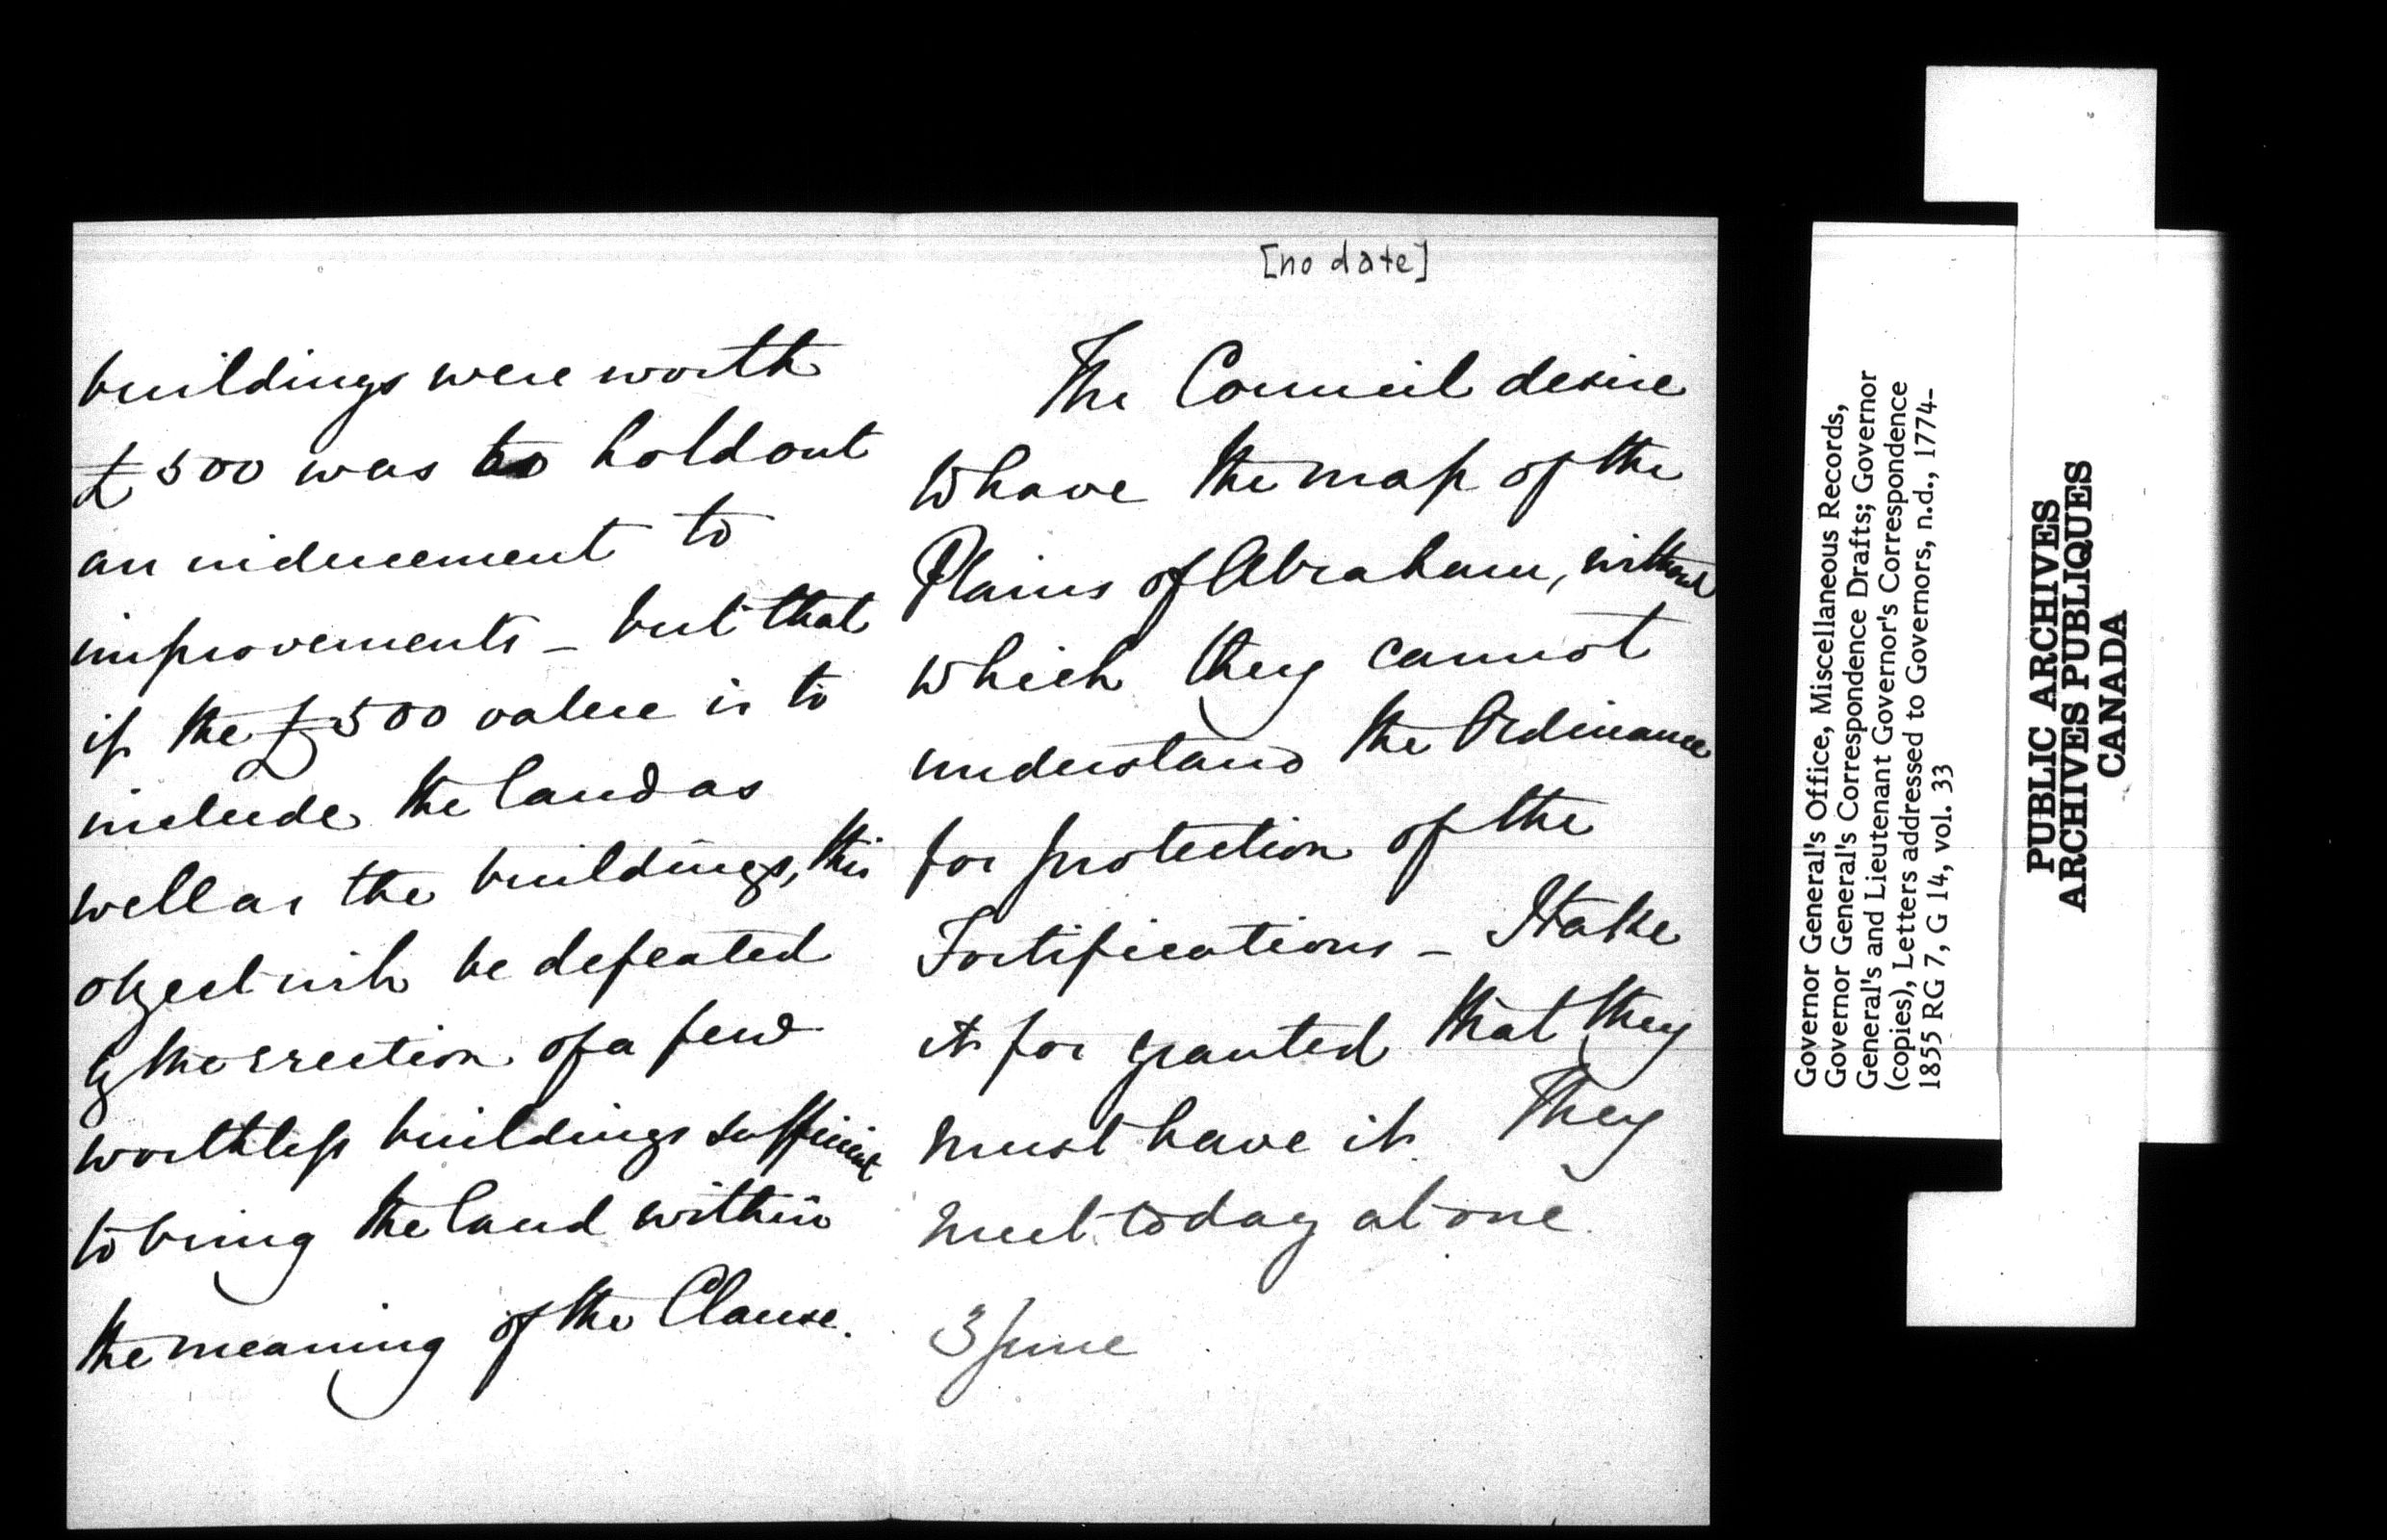 buildings were worth
£500 was to hold out
an inducement to
improvements - but that
if the £500 value is to
include the land as
well as the buildings, this
object will be defeated
by the erection of a few
worthless buildings sufficient
to bring the land within
the meaning of the Clause.
[no date]
The Council desire
to have the map of the
Plains of Abraham, without
which they cannot
understand the Ordinance
for protection of the
Fortifications - I take
it for granted that they
must have it. They
meet today at one.
3 June
Governor General's Office, Miscellaneous Records,
Governor General's Correspondence Drafts; Governor
General's and Lieutenant Governor's Correspondence
(copies), Letters addressed to Governors, n.d., 1774-
1855 RG 7, G 14, vol. 33
PUBLIC ARCHIVES
ARCHIVES PUBLIQUES
CANADA